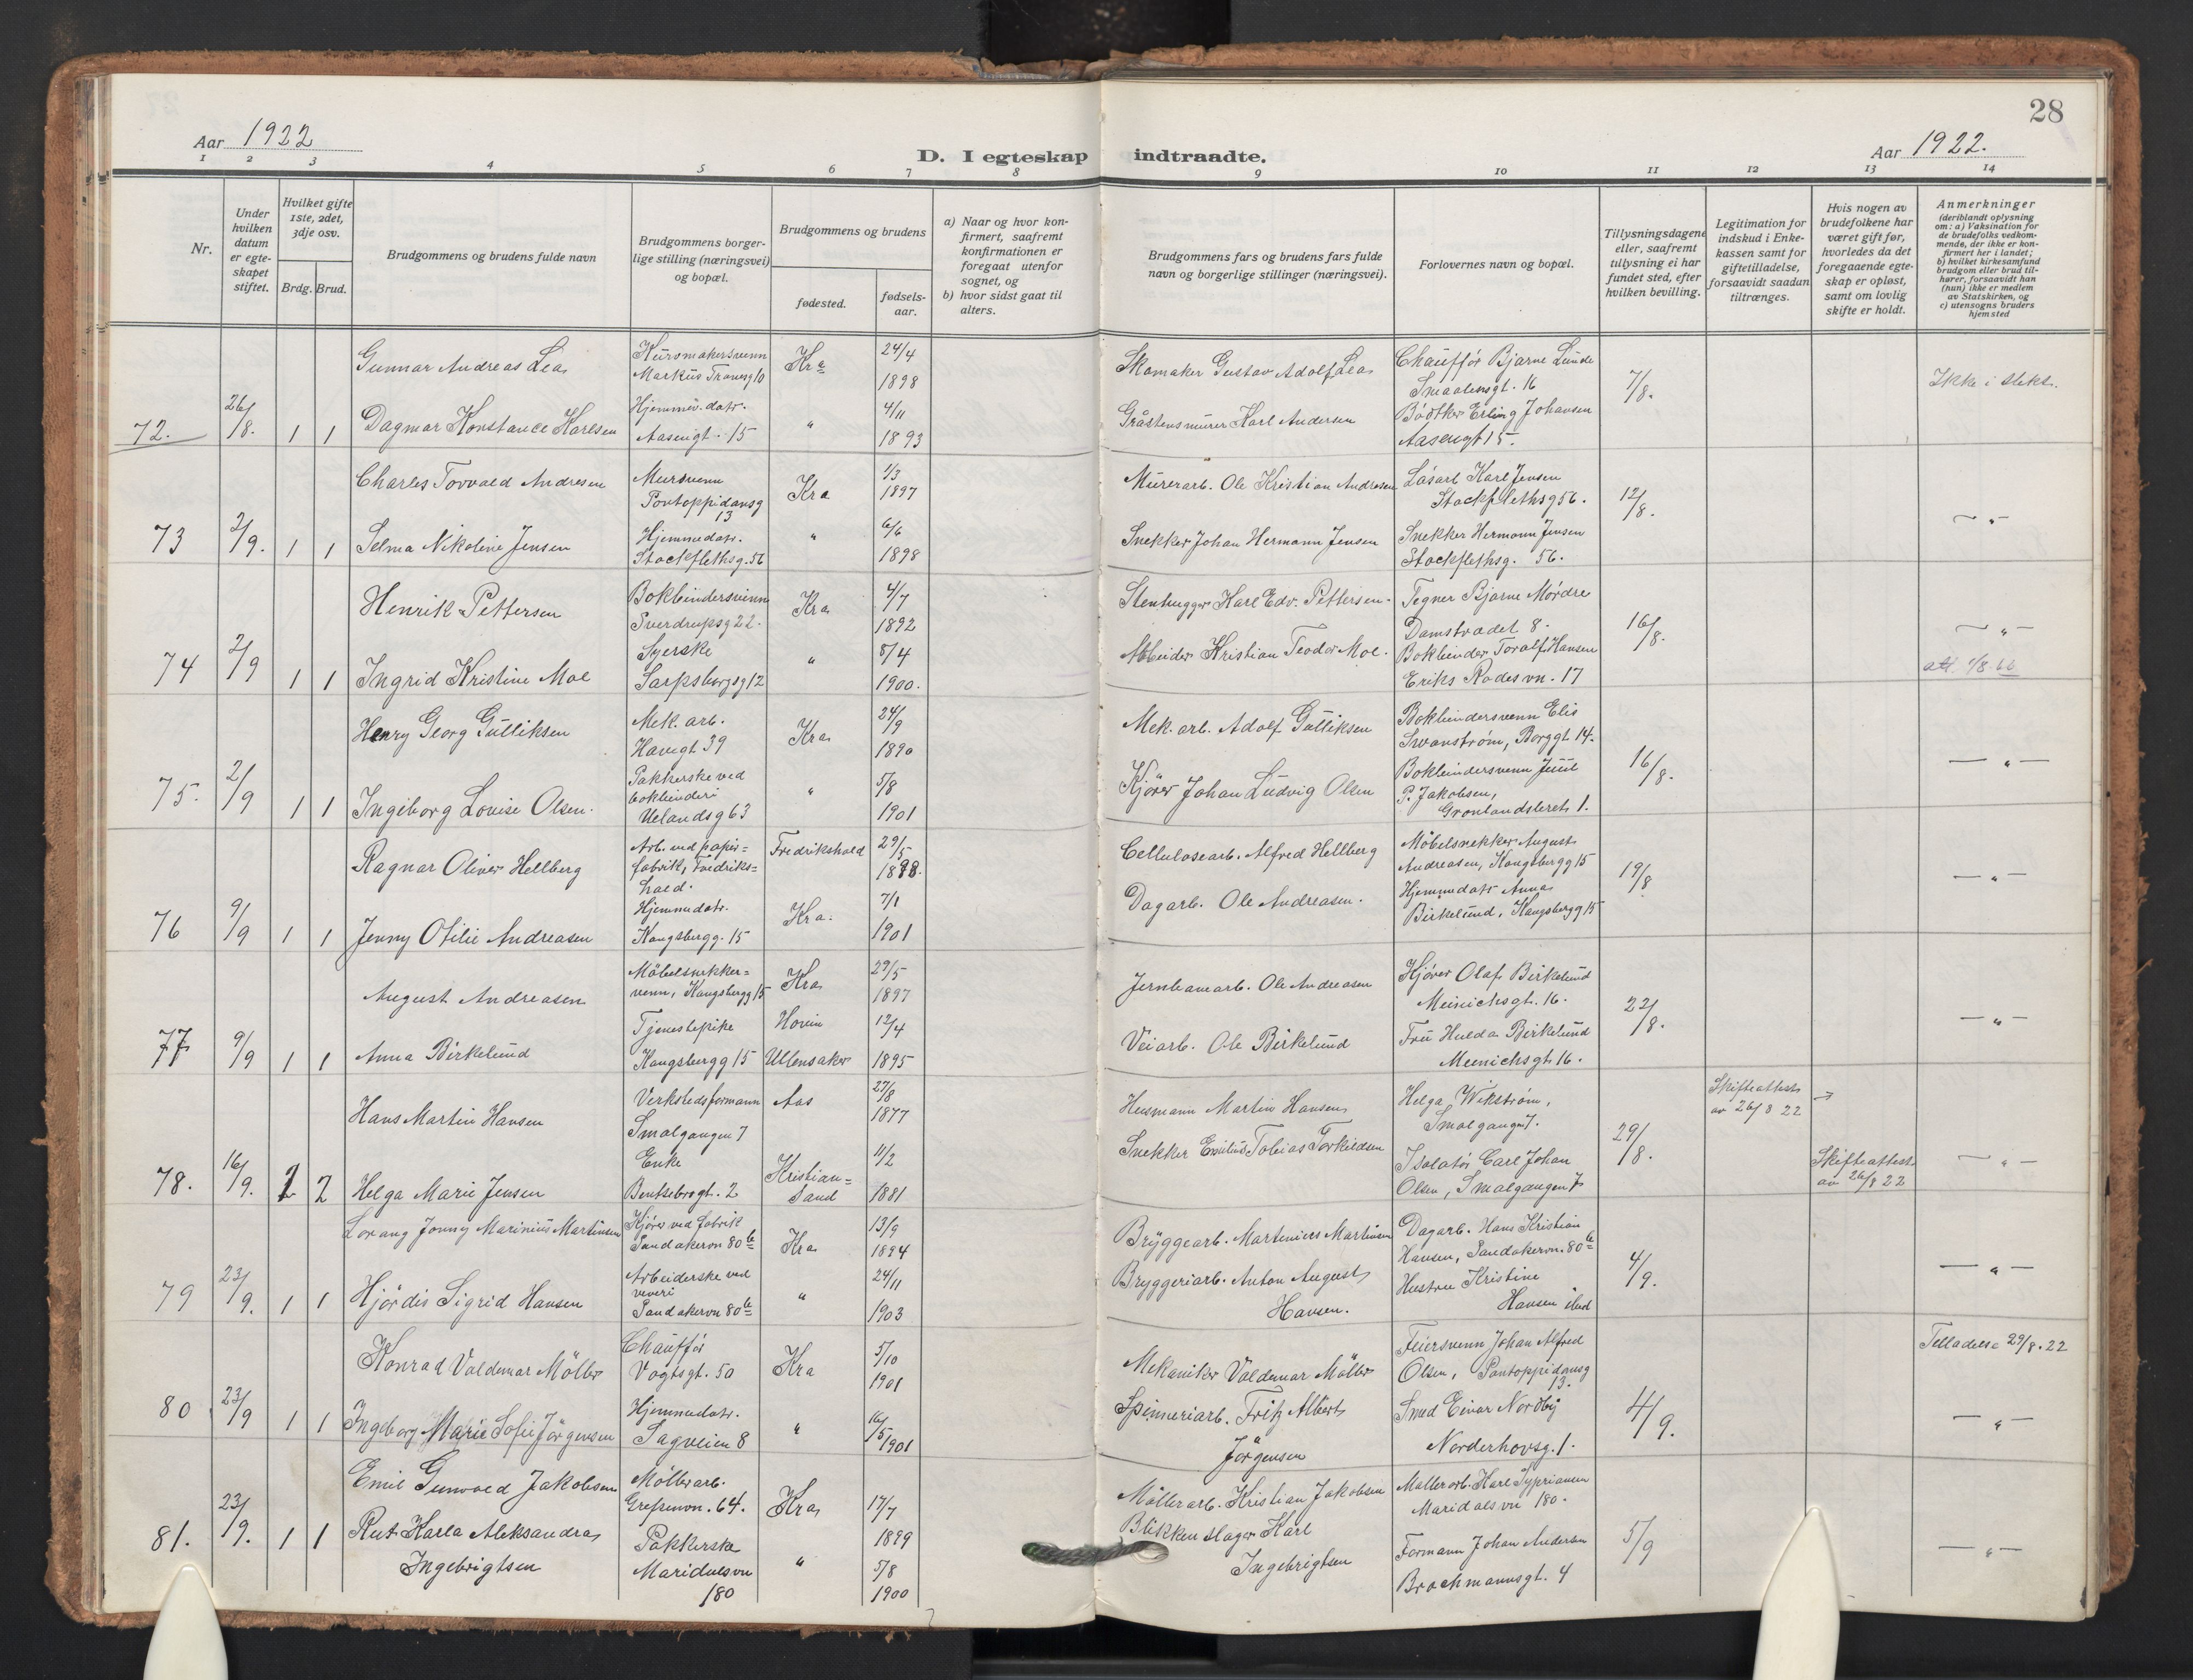 28
Aar 1922
Aar 1922.
D. I egteskap indtraadte.
1 2 3 4 5 6 7 8 9 10 11 12 13 14
Nr.
Under hvilken datum er egteskapet stiftet.
Hvilket gifte 1ste, 2det, 3dje osv.
Brdg. Brud.
Brudgommens og brudens fulde navn
Brudgommens borgerlige stilling (næringsvei) og bopæl.
Brudgommens og brudens
fødested.
fødselsaar.
a) Naar og hvor konfirmert, saafremt konfirmationen er foregaat utenfor sognet, og
b) hvor sidst gaat til alters.
Brudgommens fars og brudens fars fulde navn og borgerlige stillinger (næringsvei).
Forlovernes navn og bopæl.
Tillysningsdagene eller, saafremt tillysning ei har fundet sted, efter hvilken bevilling.
Legitimation for indskud i Enkekassen samt for giftetilladelse, forsaavidt saadan tiltrænges.
Hvis nogen av brudefolkene har været gift før, hvorledes da det foregaaende egteskap er opløst, samt om lovlig skifte er holdt.
Anmerkninger
(deriblandt oplysning om: a) Vaksination for de brudefolks vedkommende, der ikke er konfirmert her i landet;
b) hvilket kirkesamfund brudgom eller brud tilhører, forsaavidt han (hun) ikke er medlem av Statskirken, og
c) utensogns bruders hjemsted
72. 26/8. 1 1
Gunnar Andreas Lea
Kursmakersvenn Markus Tranesg 10
Kra
24/4 1898
Skomaker Gustav Adolf Lea
Chauffør Bjarne Lunde Smaalensgt. 16
7/8.
Ikke i slekt.
Dagmar Konstance Karlsen
Hjemmev. datr. Aasengt. 15
"
4/11 1893
Gråstensmurer Karl Andersen
Bødtker Erling Johansen Aasengt 15.
73 2/9. 1 1
Charles Torvald Andresen
Mursvenn Pontoppidansg 13
Kra
1/3 1897
Murerarb. Ole Kristian Andresen
Løsarb Karl Jensen Stockflethsg 56.
12/8.
— " —
Selma Nikoline Jensen
Hjemmedatr. Stockflethsg. 56
"
6/6 1898
Snekker Johan Hermann Jensen
Snekker Hermann Jensen Stockflethsg. 56.
74 2/9 1 1
Henrik Pettersen
Bokbindersvenn Sverdrupsg 22.
Kra
4/7 1892
Stenhugger Karl Edv. Pettersen.
Tegner Bjarne Mørdre Damstrædet 8.
16/8.
— " —
Ingrid Kristine Moe
Syerske Sarpsborgsg 12
"
8/4 1900.
Arbeider Kristian Teodor Moe.
Bokbinder Toralf Hansen Eriks Rodes vn. 17
att 4/8.66
75. 2/9 1 1
Henry Georg Gulliksen
Mek. arb. Havegt 39
Kra
24/9 1890
Mek. arb. Adolf Gulliksen
Bokbindersvenn Elis Swanstrøm, Borggt 14.
16/8.
— " —
Ingeborg Lovise Olsen.
Pakkerske ved bokbinderi Uelandsg 63
"
5/8 1901
Kjører Johan Ludvig Olsen
Bokbindersvenn Juul P. Jakobsen, Grønlandsleret 1.
76 9/9 1 1
Ragnar Oliver Hellberg
Arb. ved papirfabrik, Fredrikshald.
Fredrikshald
29/5 1898.
Cellulosearb. Alfred Hellberg
Möbelsnekker August Andreasen, Kongsbergg 15
19/8
— " —
Jenny Otilie Andreasen
Hjemmedatr. Kongsbergg. 15
Kra.
7/1 1901
Dagarb. Ole Andreasen.
Hjemmedatr Anna Birkelund, Kongsbergg 15
77 9/9 1 1
August Andreasen
Möbelsnekkersvenn, Kongsbergg 15
Kra
29/5 1897
Jernbanearb. Ole Andreasen
Kjører Olaf Birkelund Meinichsgt. 16.
22/8.
— " —
Anna Birkelund
Tjenestepike Kongsbergg 15
Hovin Ullensaker
12/4 1895
Veiarb. Ole Birkelund
Fru Hulda Birkelund Meinichsgt 16.
78. 16/9. 2 2
Hans Martin Hansen
Verkstedsformann Smalgangen 7
Aas
27/8 1877
Husmann Martin Hansen
Helga Wikstrøm, Smalgangen 7.
29/8.
Skifteattest av 26/8 22 →
Helga Marie Jensen
Enke Bentsebrogt. 2
Kristiansand
11/2 1881
Snekker Emilius Tobias Torkildsen
Isolatør Carl Johan Olsen, Smalgangen 7
Skifteattest av 26/8 22
— " —
79 23/9. 1 1
Lorang Jonny Marinius Martinsen
Kjører ved fabrik Sandakervn 80 b
Kra
13/9 1894
Bryggearb. Martenius Martinsen
Dagarb. Hans Kristian Hansen, Sandakervn. 80 b
4/9.
— " —
Hjørdis Sigrid Hansen
Arbeiderske ved veveri Sandakervn 80 b
"
24/11 1903
Bryggeriarb. Anton August Hansen.
Hustru Kristine Hansen ibid
80 23/9 1 1
Konrad Valdemar Möller
Chauffør Vogtsgt. 50
Kra
5/10 1901
Mekaniker Valdemar Möller
Feiersvenn Johan Alfred Olsen, Pontoppidansg 13.
4/9.
Tilladelse 29/8.22
Ingeborg Marie Sofie Jörgensen
Hjemmedatr. Sagveien 8
"
16/5 1901
Spinneriarb. Fritz Albert Jörgensen
Smed Einar Nordby Norderhovsg. 1.
— " —
81. 23/9. 1 1
Emil Gunvald Jakobsen
Möllerarb. Grefsenvn. 64.
Kra
17/7 1899
Möllerarb. Kristian Jakobsen
Möllerarb. Karl Syprianen Maridalsvn 180.
5/9
— " —
Rut Karla Aleksandra Ingebrigtsen
Pakkerske Maridalsvn 180
"
5/8 1900
Blikkenslager Karl Ingebrigtsen
Formann Johan Andersen Brochmannsgt. 4